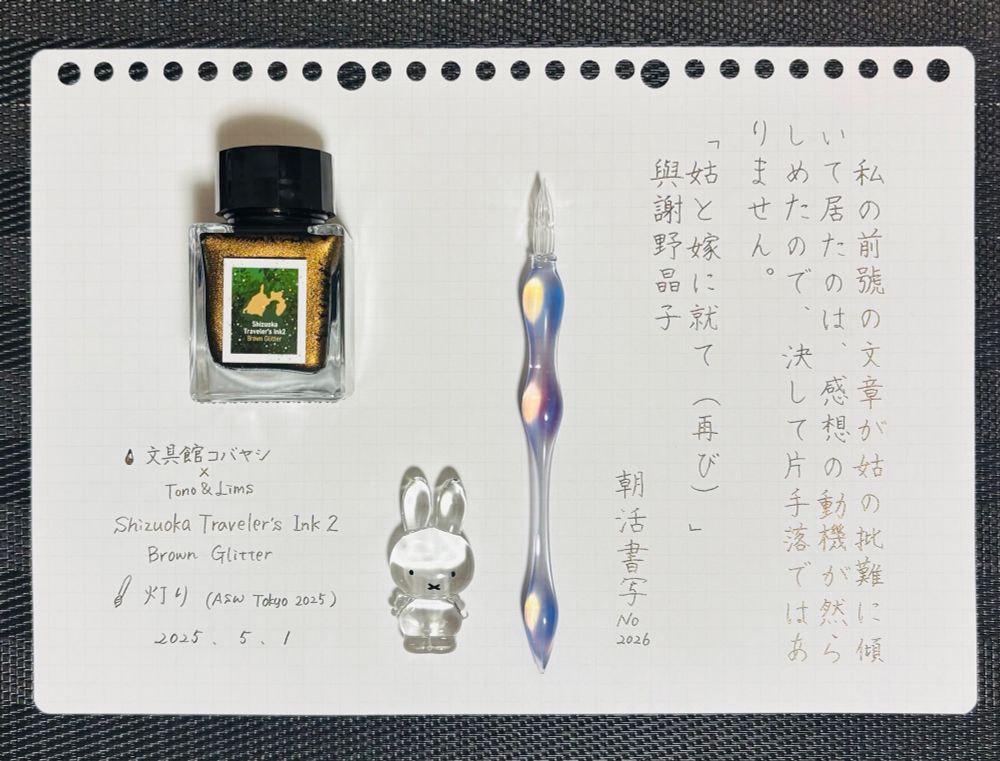 私の前號の文章が姑の批難に傾
いて居たのは、感想の動機が然ら
しめたので、決して片手落ではあ
りません。
「姑と嫁に就て（再び）」
與謝野晶子
朝活書写
No
2026
Shizuoka
Traveler's Ink2
Brown Glitter
文具館コバヤシ
×
Tono & Lims
Shizuoka Traveler's Ink 2
Brown Glitter
灯り (ASW Tokyo 2025)
2025. 5. 1